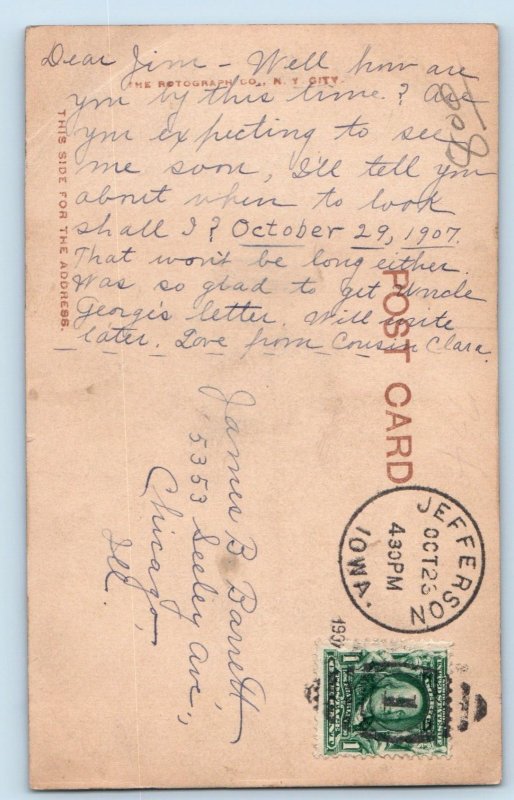 Dear Jim - Well how are
THE ROTOGRAPH CO., N. Y. CITY.
you by this time? Are
you expecting to see
me soon, I'll tell you
about when to look
shall I? October 29, 1907.
That won't be long either.
Was so glad to get Uncle
George's letter. Will write
later. Love from Cousin Clara.
THIS SIDE FOR THE ADDRESS.
POST CARD
James B Barrett,
5353 Seeley Ave.,
Chicago,
Ill.
JEFFERSON
OCT 23
430PM
IOWA.
190
1
1
1